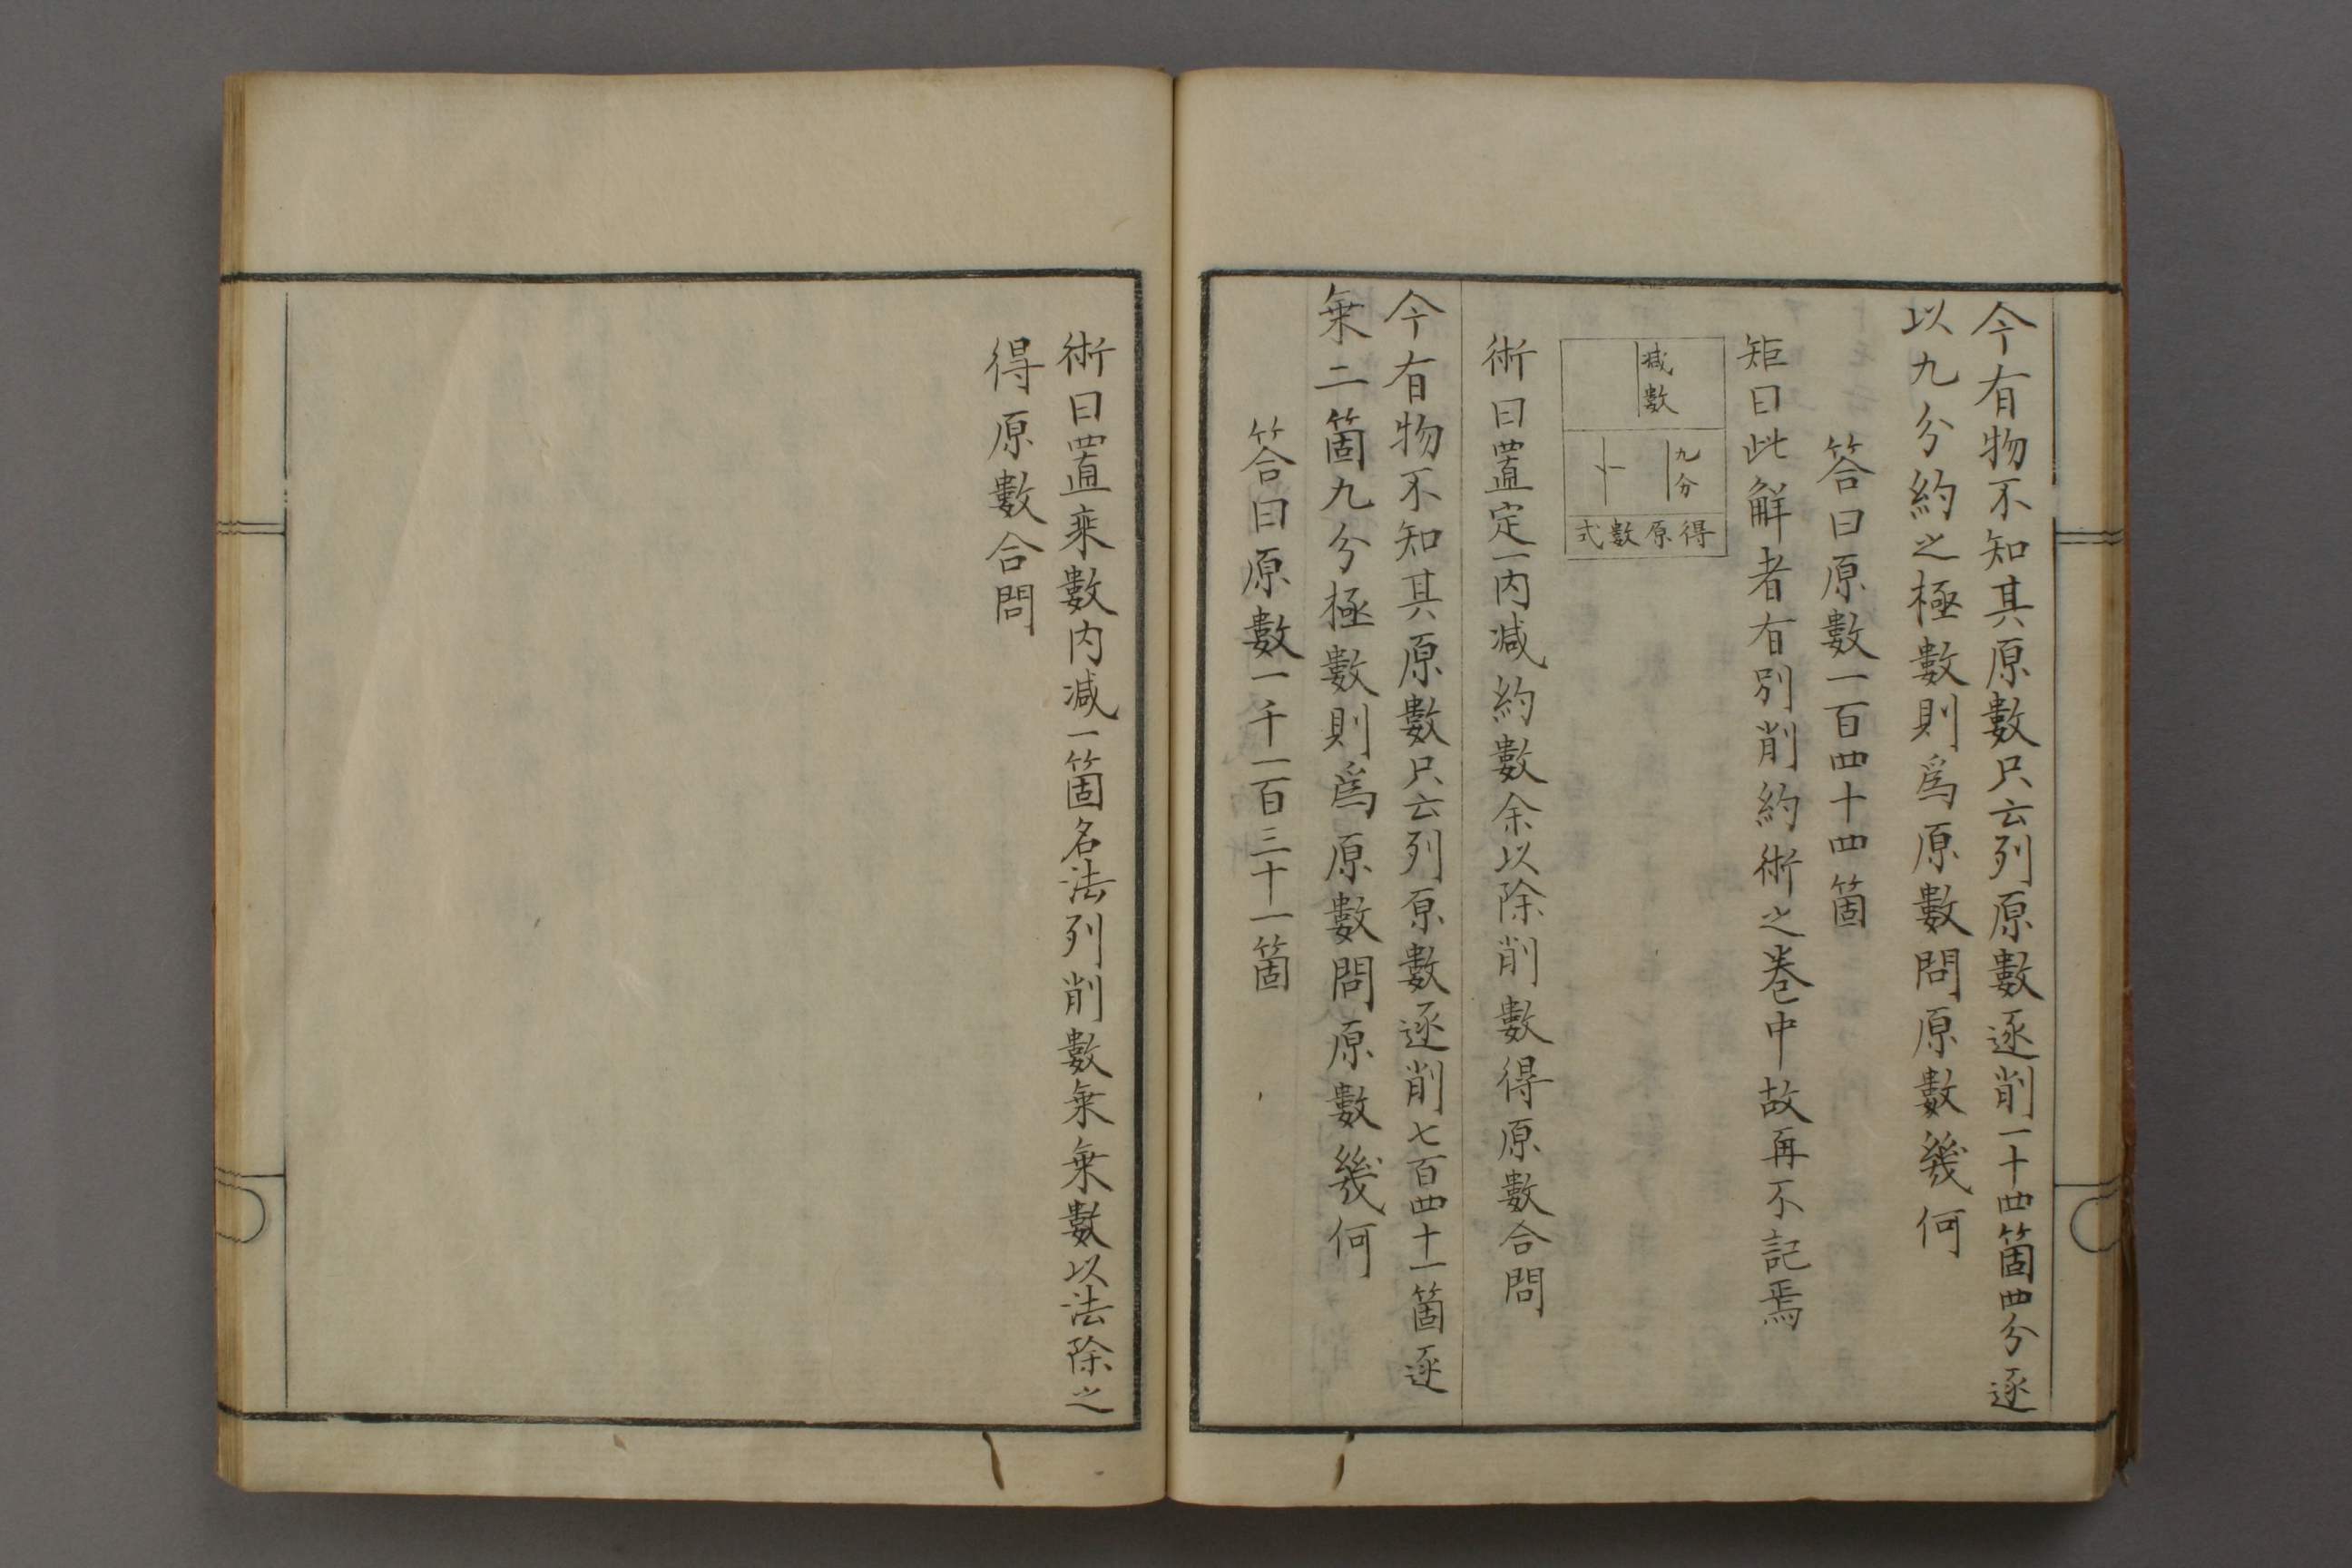 今有物不知其原數只云列原數逐削一十四箇四分逐
以九分約之極數則爲原數問原數幾何
答曰原數一百四十四箇
矩曰此解者有別削約術之巻中故再不記焉
減數
九分
得原數式
術曰置定一内減約數余以除削數得原數合問
今有物不知其原數只云列原數逐削七百四十一箇逐
乗二箇九分極數則爲原數問原數幾何
答曰原數一千一百三十一箇
術曰置乗數内減一箇名法列削數乗乗數以法除之
得原數合問